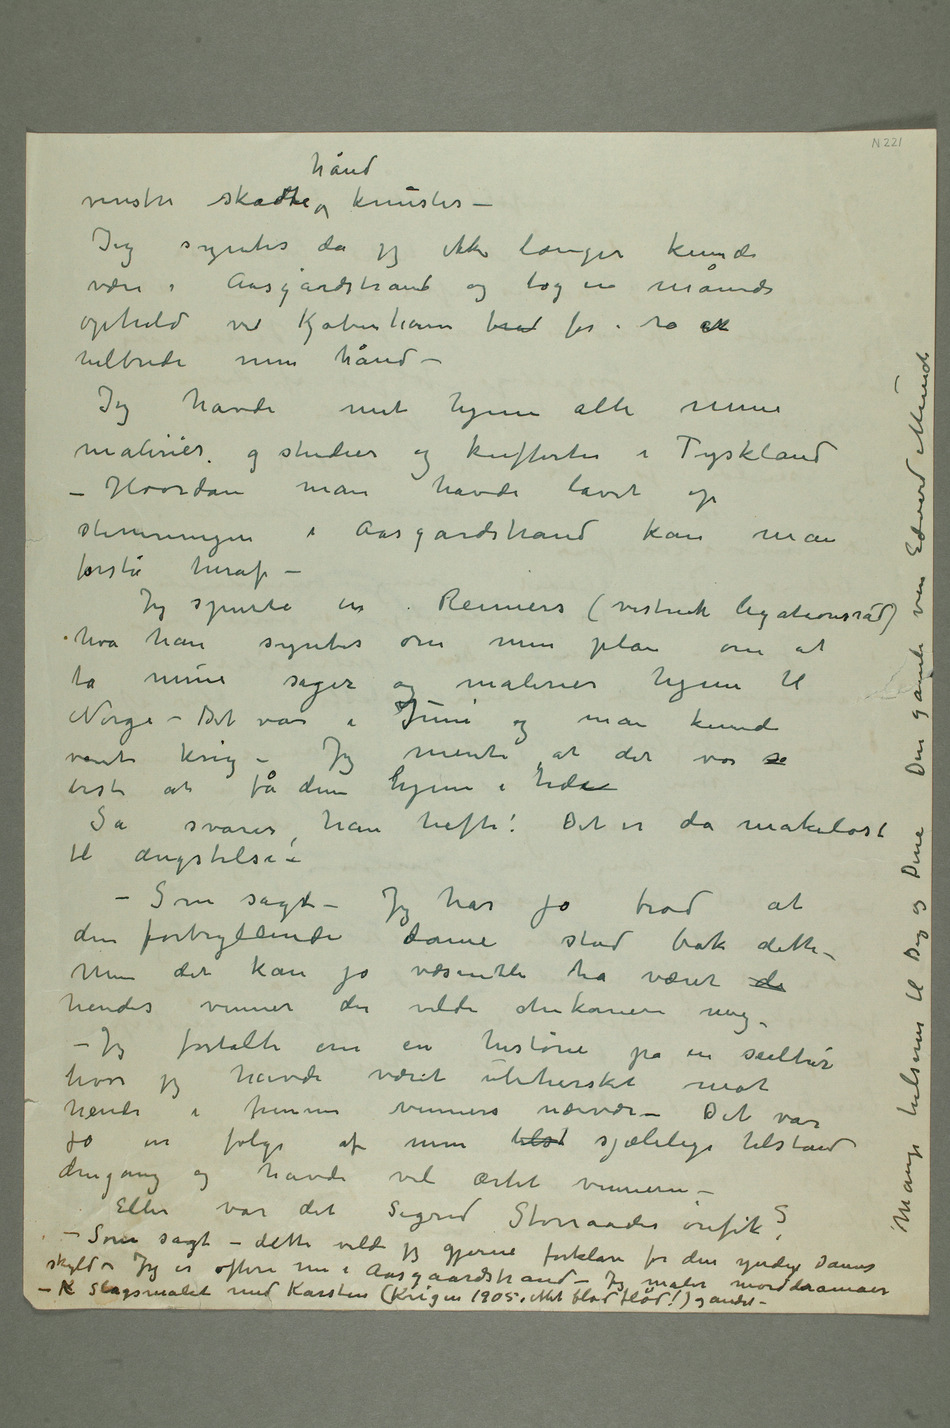 N 221
hånd
venstre skadte og knustes –
Jeg syntes da jeg ikke længer kunde
være i Aasgårdstrand og tog en måneds
ophold ved Kjøbenhavn for i ro at
helbrede min hånd –
Jeg havde mit hjem alle mine
malerier og studier og kufferter i Tyskland
– Hvordan man havde lavet op
stemningen i Aasgardstrand kan man
forstå heraf –
Jeg spurte en Reimers (vistnok legationsråd)
hva han syntes om min plan om at
ta mine sager og malerier hjem til
Norge – Det var i Juni og man kunde
vente krig – Jeg mente at det var
best at få dem hjem i tide
Så svarer han heftig: Det er da makeløst
til ængstelse! –
– Som sagt – Jeg har jo trod at
den fortryllende dame stod bak dette –
Men det kan jo væsentlig ha været de
hendes venner der vilde chikanere mig –
– Jeg fortalte om en historie på en seiltur
hvor jeg havde været ubehersket mot
hende i hennes venners nærvær – Det var
jo en følge af min tilst sjælelige tilstand
dengang og havde vel ærtet vennerne –
Eller var det Sigrid Storraades ørefik?
– Som sagt – dette vilde jeg gjerne forklare for den yndige Dames
skyld – Jeg er oftere nu i Aasgaardstrand – Jeg maler morddramaer
– K Slagsmalet med Karsten (Krigen 1905, ikke blod flød!) og andet –
Mange hilsener til Dig og Dine Din gamle ven Edvard Munch